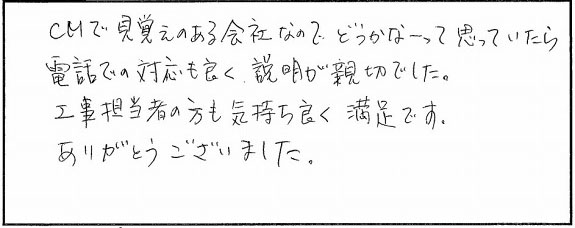 CMで見覚えのある会社なので どうかなーって思っていたら
電話での対応も良く、説明が親切でした。
工事担当者の方も気持ち良く 満足です。
ありがとうございました。